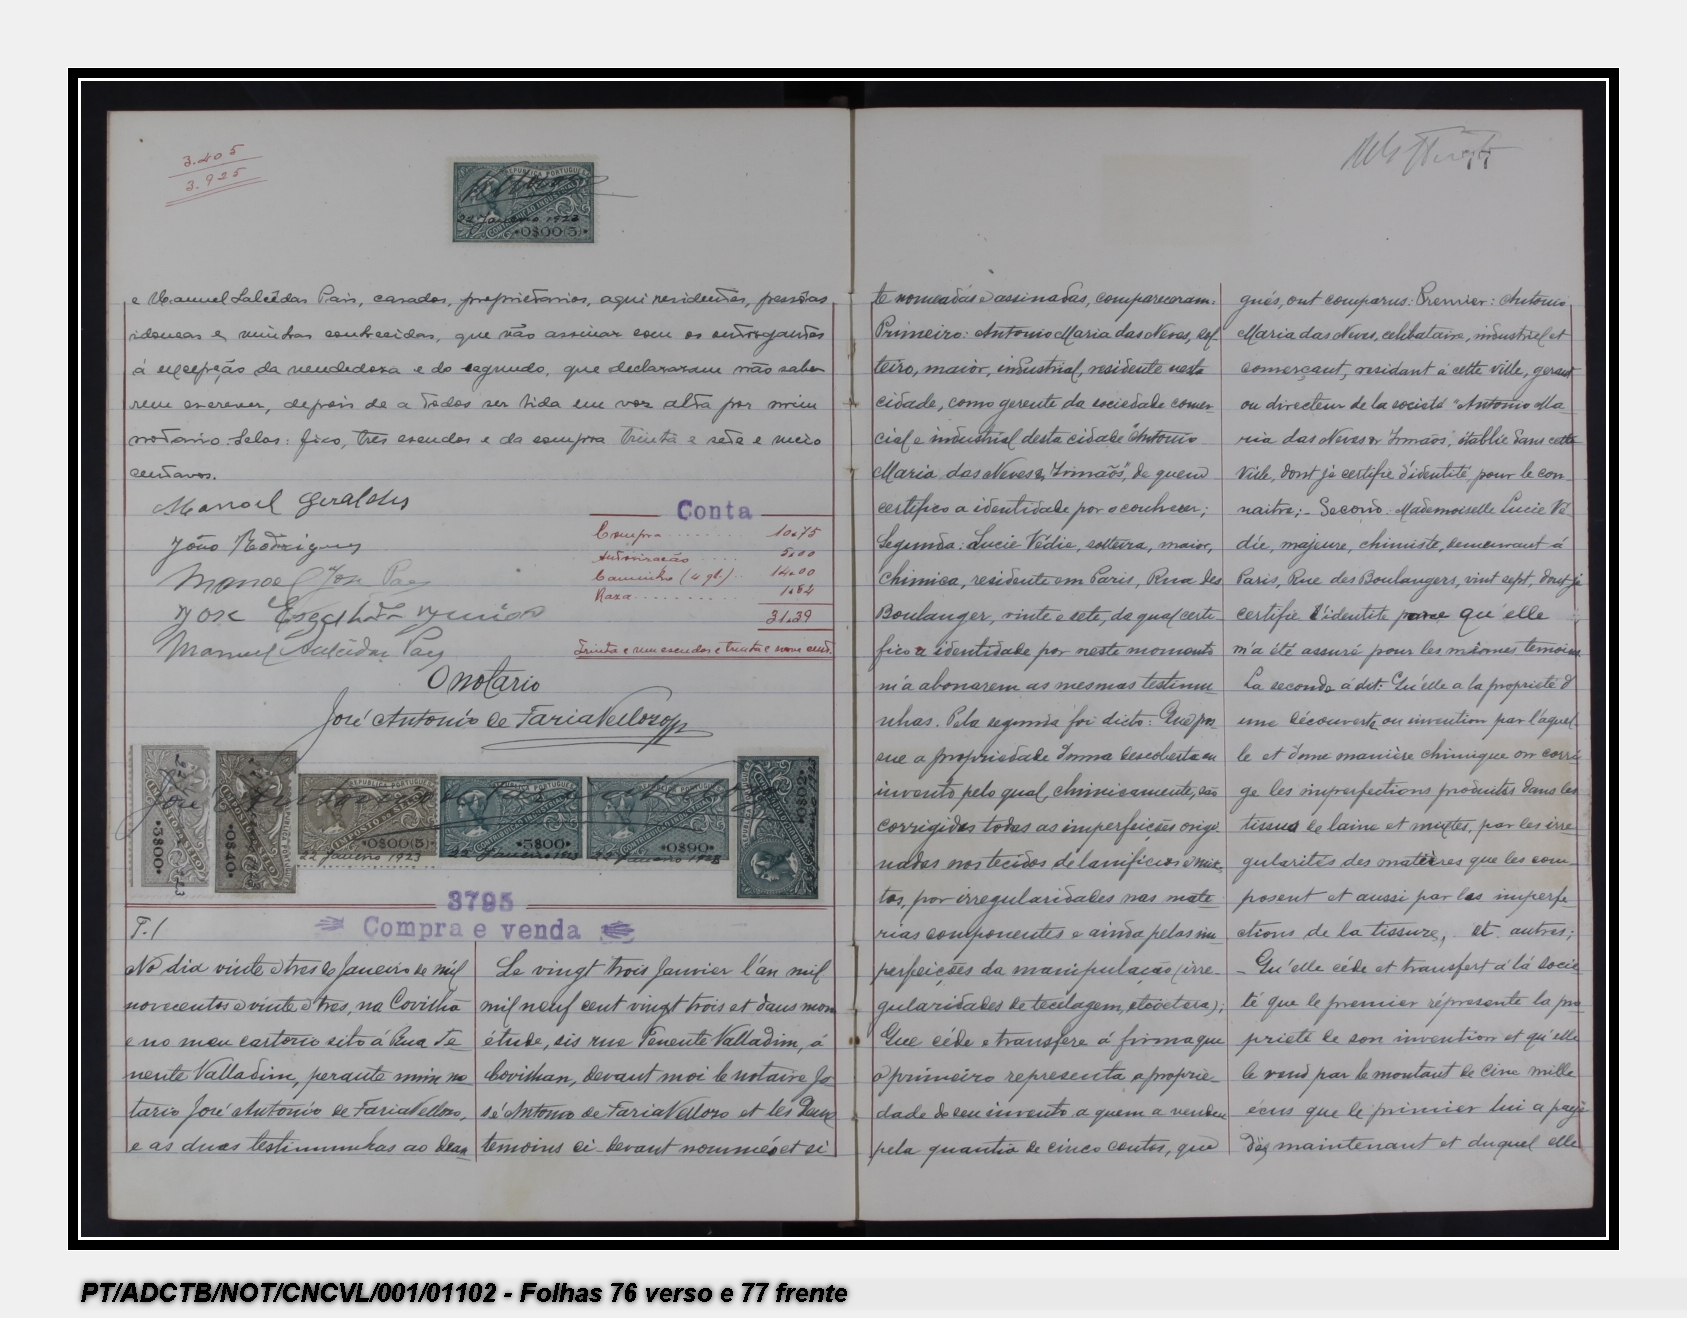 3.405
3.925
REPUBLICA PORTUGUESA
22 Janeiro 1923
CONTRIBUIÇÃO INDUSTRIAL
0$00(5)
e Manuel Salcêdas Pais, casados, proprietarios, aqui residentes, pessôas
idoneas e minhas conhecidas, que vão assinar com os outorgantes
á excepção da vendedora e do segundo, que declararam não sabe-
rem escrever, depois de a todos ser lida em voz alta por mim
notario. Selos: fixo, tres escudos e da compra trinta e sete e meio
centavos.
Manoel Geraldes
João Rodrigues
Manoel José Paes
José Júnior
Manuel Salcêdas Paes
Conta
Compra 10.75
Autorização 5.00
Caminho (4 ql.) 14.00
Raza 1.64
31.39
Trinta e um escudos e trinta e nove cent.
O notario
José Antonio de Faria Vellozo
José Antonio de Faria Vellozo
3$00
0$40
0$00(5)
5$00
0$90
22 Janeiro 1923
22 Janeiro 1923
22 Janeiro 1923
3795
Compra e venda
F. 1
No dia vinte e tres de Janeiro de mil
novecentos e vinte e tres, na Covilhã
e no meu cartorio sito á Rua Te-
nente Valladim, perante mim no
tario José Antonio de Faria Vellozo,
e as duas testimunhas ao dean
Le vingt trois Janvier l'an mil
mil neuf cent vingt trois et dans mon
étude, sis rue Tenente Valladim, á
Covilhan, devant moi le notaire Jo
sé Antonio de Faria Vellozo et les deux
temoins ci-devant nommés et si
77
te nomeadas e assinadas, compareceram:
Primeiro: Antonio Maria das Neves, sol
teiro, maior, industrial, residente nesta
cidade, como gerente da sociedade comer
cial e industrial desta cidade "Antonio
Maria das Neves & Irmãos", de quem
certifico a identidade por o conhecer;
Segunda: Lucie Védie, solteira, maior,
chimica, residente em Paris, Rua des
Boulanger, vinte e sete, da qual certi-
fico a identidade por neste momento
m'a abonarem as mesmas testimu-
nhas. Pela segunda foi dicto: Que pos
sue a propriedade d'uma descoberta ou
invento pelo qual, chimicamente, são
corrigidas todas as imperfeicões origi-
nadas nos tecidos de lanificios e mix-
tos, por irregularidades nas mate-
rias componentes e ainda pelas im-
perfeicões da manipulação (irre-
gularidades de tecelagem, etcoetera);
Que céde e transfere á firma que
o primeiro representa a proprie-
dade do seu invento a quem a vendeu
pela quantia de cinco contos, que
gnés, ont comparus: Premier: Antonio
Maria das Neves, celibataire, industriel et
comerçant, residant á cette ville, gerant
ou directeur de la societé "Antonio Ma
ria das Neves & Irmãos", établie dans cette
ville, dont je certifie d'identité pour le con-
naitre; - Second: Mademoiselle Lucie Vé
die, majeure, chimiste, demeurant á
Paris, Rue des Boulangers, vint sept, dont je
certifie l'identite parce qu'elle
m'a été assuré pour les mêmes temoins
La seconde á dit: Qu'elle a la proprieté d'
une découverte ou invention par l'aquel
le et d'une manière chimique on corri
ge les imperfections produites dans les
tissus de laine et mixtes, par les irre
gularités des matières que les com-
posent et aussi par les imperfe
ctions de la tissure, et autres;
- Qu'elle céde et transfert á lá socie
té que le premier réprésente la pro
prieté de son invention et qu'elle
le vend par le montant de cinc mille
écus que le primier lui a payé
dès maintenant et duquel elle
PT/ADCTB/NOT/CNCVL/001/01102 - Folhas 76 verso e 77 frente